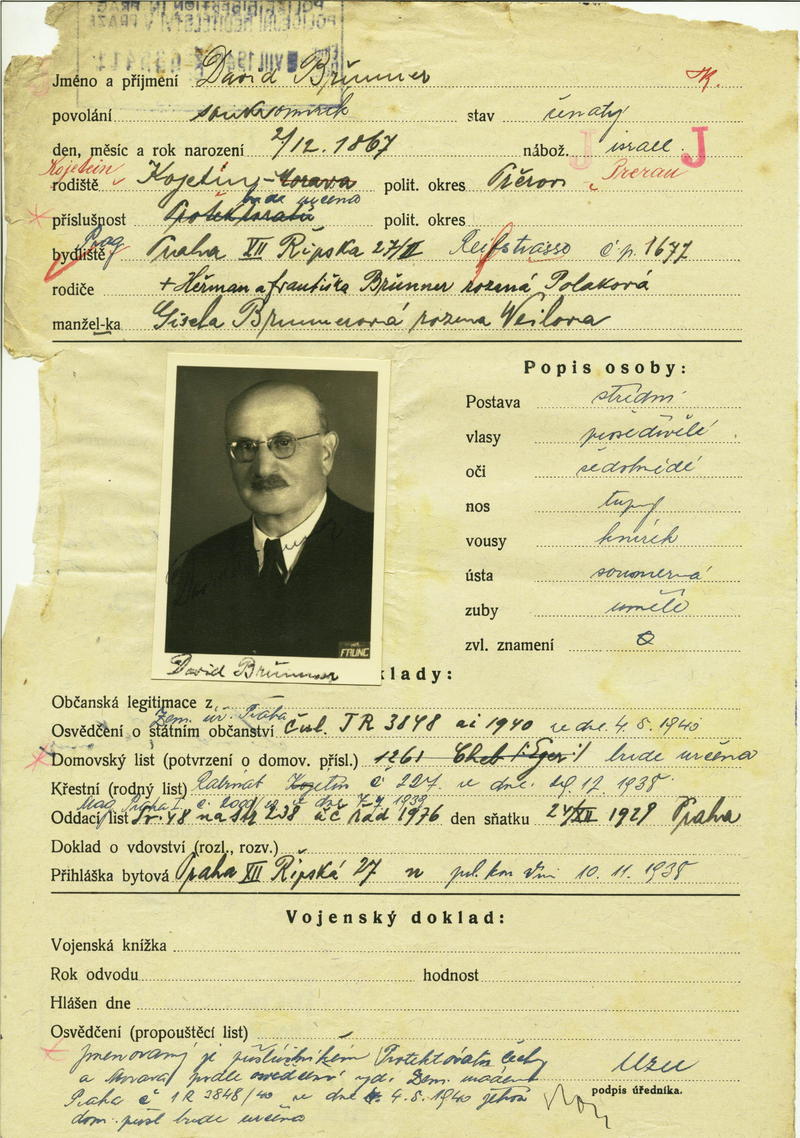 POLIZEIDIREKTION IN PRAG
POLICEJNÍ ŘEDITELSTVÍ V PRAZE
VIII. 194
Jméno a příjmení David Brünner K.
povolání soukromník stav ženatý
den, měsíc a rok narození 2/12. 1867 nábož. J israel. J
Kojetein
rodiště Kojetín - Morava polit. okres Přerov Prerau
bude určena
příslušnost Protektorátu polit. okres
Prag
bydliště Praha VII Řipska 27/II Reifstrasse č.p. 1677
rodiče + Heřman a františka Brünner rozená Polaková
manžel-ka Gisela Brunnerová rozena Weilova
Popis osoby:
Postava střední
vlasy prošedivělé
oči šedohnědé
nos tupý
vousy knírek
ústa souměrná
zuby umělé
zvl. znamení 0
FAUNC
David Brünner
klady:
Občanská legitimace z
Zem. úř. Praha
Osvědčení o státním občanství čísl. IR 3848 ai 1940 ze dne 4.5.1940
Domovský list (potvrzení o domov. přísl.) 1261 Cheb (Eger) bude určena
Křestní (rodný list) Rabinát Kojetín č 227. ze dne 19 12. 1938
Mag. Praha I. č. ze dne 7.4. 1939
Oddací list Sv. 48 na str 238 řad 1976 den sňatku 24/XII 1929 Praha
Doklad o vdovství (rozl., rozv.)
Přihláška bytová Praha VII Řipská 27 pol. kom 10. 11. 1938
Vojenský doklad:
Vojenská knížka
Rok odvodu hodnost
Hlášen dne
Osvědčení (propouštěcí list)
Jmenovaný je příslušníkem Protektorátu Čechy
a Morava podle osvědčení vyd. Zem. úřadem
Praha č IR 3848/40 ze dne 4.5.1940 jehož
dom. přísl bude určena
podpis úředníka.